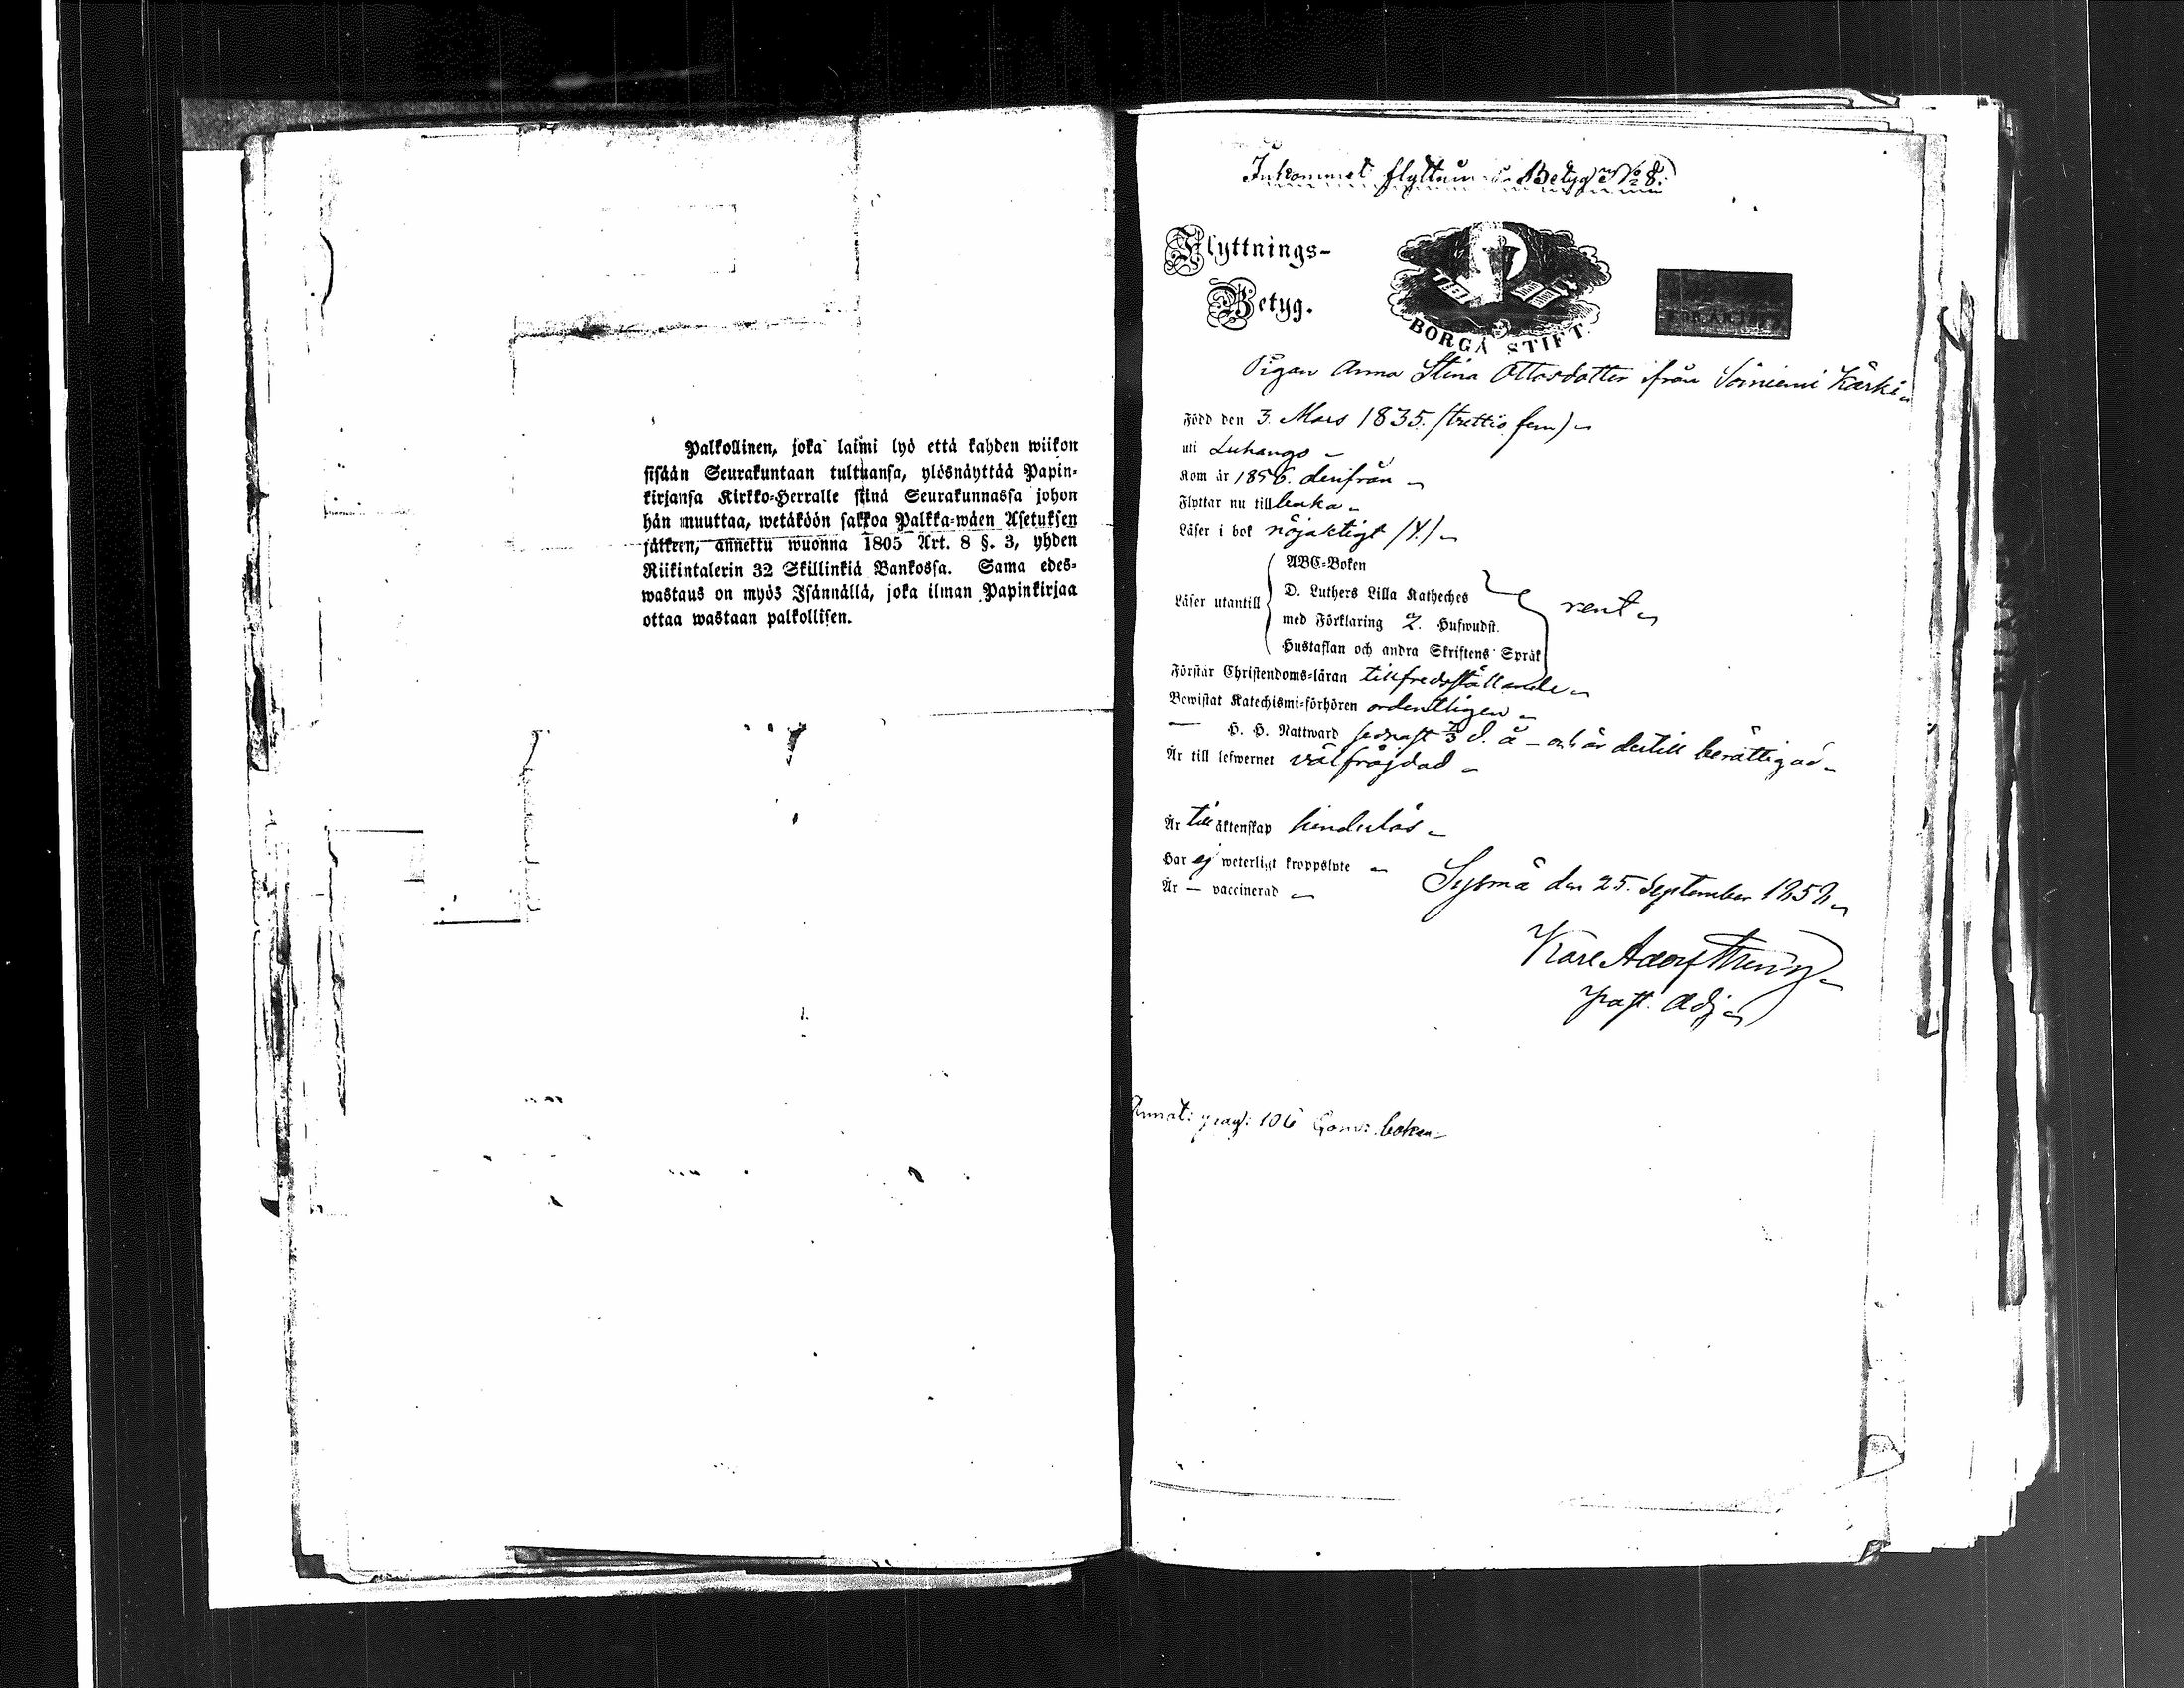 Palkollinen, joka laimi lyö että kahden wiikon
sisään Seurakuntaan tultuansa, ylösnäyttää Papin-
kirjansa Kirkko-Herralle siinä Seurakunnassa johon
hän muuttaa, wetäköön sakkoa Palkka-wäen Asetuksen
jälkeen, annettu wuonna 1805 Art. 8 §. 3, yhden
Riikintalerin 32 Skillinkiä Bankossa. Sama edes-
wastaus on myös Isännällä, joka ilman Papinkirjaa
ottaa wastaan palkollisen.
Inkommet flyttnings Betyg No 8.
Flyttnings-
Betyg.
BORGÅ STIFT.
Pigan Anna Stina Ottosdotter ifrån Soiniemi Kärki
Född den 3. Mars 1835. (trettio fem)
uti Luhango
Kom år 1856. derifrån
Flyttar nu tillbaka
Läser i bok nöjaktigt
Läser utantill
ABC-Boken
D. Luthers Lilla Katheches
med Förklaring Hufwudst.
Hustaflan och andra Skriftens Språk
rent
Förstår Christendoms-läran tillfredsställande
Bewistat Katechismi-förhören ordentligen
— H. H. Nattward sednast d. å – och är dertill berättigad
Är till lefwernet välfräjdad
Är till äktenskap hinderlös
Har ej weterligt kroppslyte
Är — vaccinerad
Sysmä den 25. September
Karl Adolf
past. adj.
pag: 106 boken